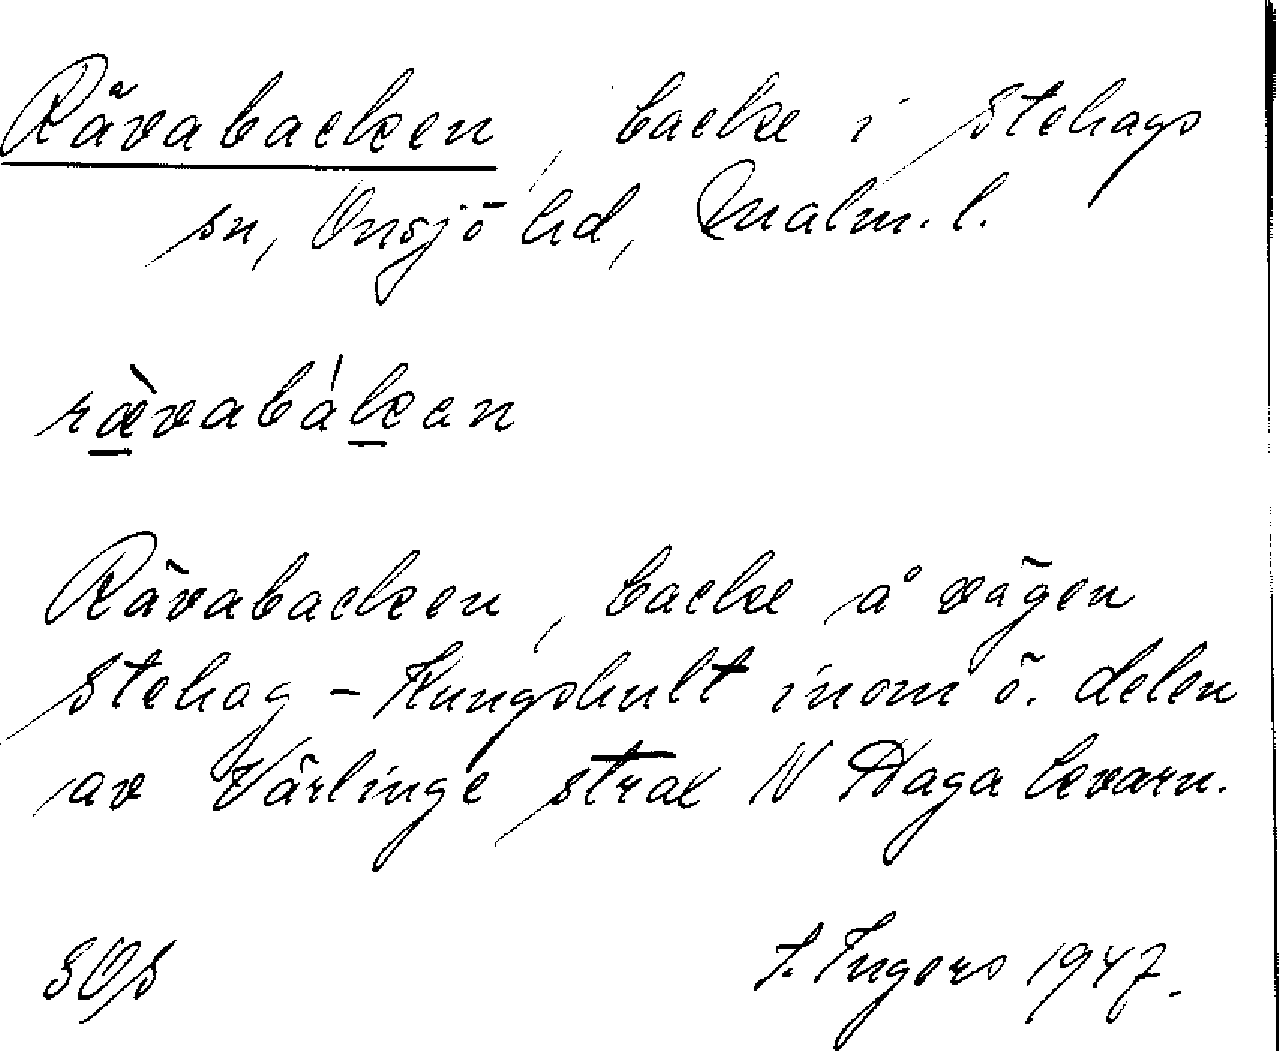 Rävabacken, backe i Stehags
sn, Onsjö hd, Malm. l.
rævabákan
Rävabacken, backe å vägen
Stehag - Kungshult inom ö. delen
av Värlinge strax N Haga kvarn.
SOS
I. Ingers 1947.